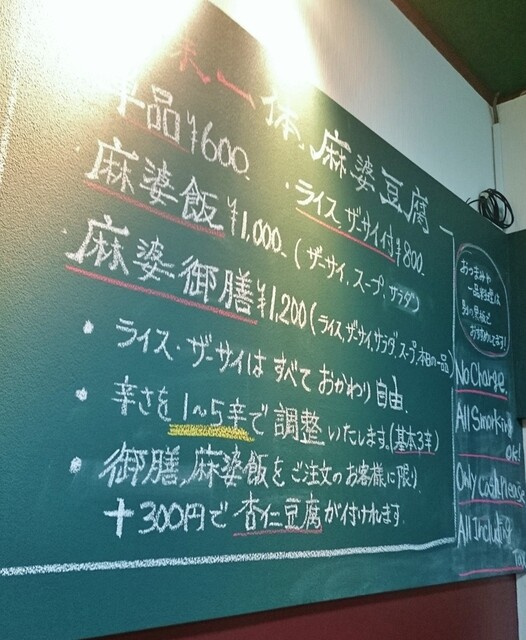 一体、麻婆豆腐
単品¥600.
・ライス、ザーサイ付¥800.
・麻婆飯¥1,000.(ザーサイ、スープ、サラダ)
・麻婆御膳¥1,200(ライス、ザーサイ、サラダ、スープ、本日の一品)
・ライス・ザーサイはすべておかわり自由.
・辛さを1〜5辛で調整いたします.(基本3辛)
・御膳、麻婆飯をご注文のお客様に限り
+300円で杏仁豆腐が付けれます.
おつまみや
一品料理は
おすすめしてます!
No Charge.
All Smorking
ok!
Only cash Please
All Including